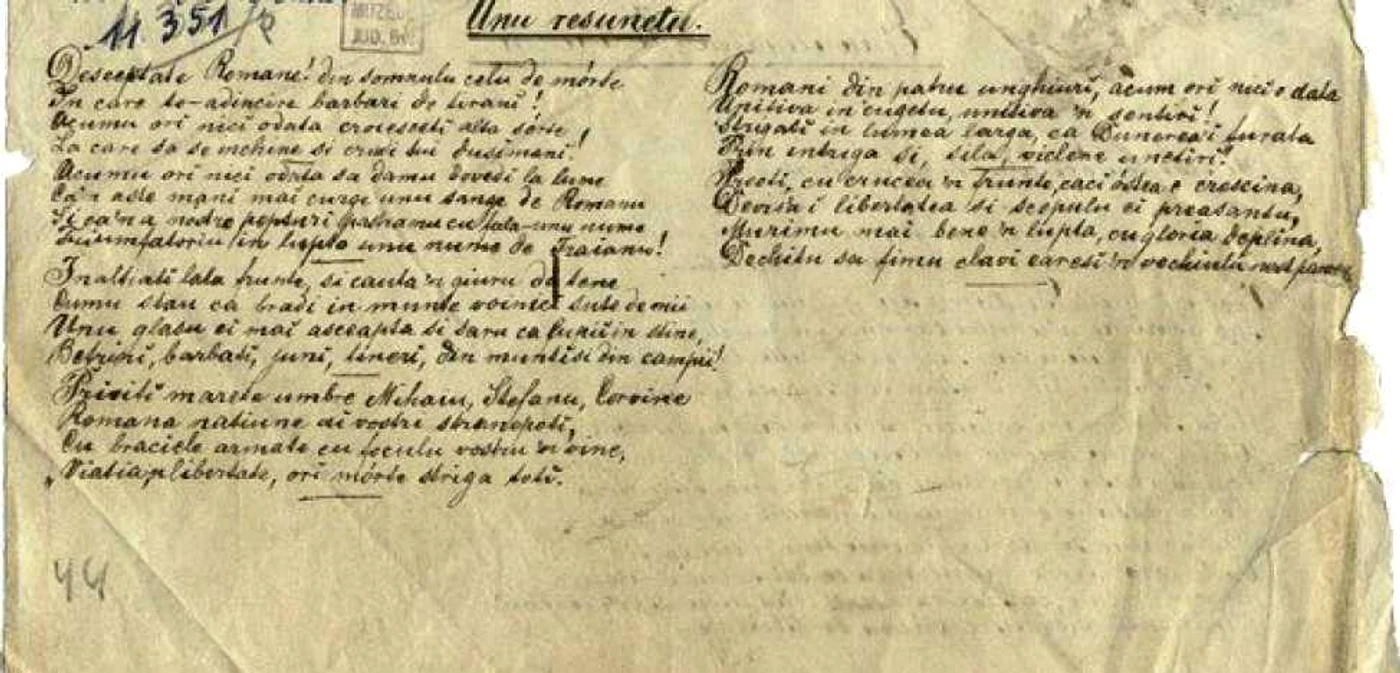 11.351
MUZEUL
JUD.
Unu resunetu.
Desceptate Romane! din somnulu celu de mórte
In care te-adincire barbari de tirani!
Acumu ori nici odata croiesesti alta sórte!
La care sa se inchine si crudi tui dusimani!
Acumu ori nici odata sa damu dovedi la lume
Ca'n aste mani mai curge unu sange de Romanu
Si ca'n a nostre pepturi pastramu cu fala-unu nume
Triumfatoriu in lupte unu nume de Traianu!
Inaltiati lata frunte, si cauta'n giuru de tene
Cumu stau ca bradi in munte voinici sute de mii
Unu glasu ei mai asceapta si saru ca lupii in stine,
Betrini, barbati, juni, tineri, din muntisi din campii!
Priviti marete umbre Mihaiu, Stefanu, Corvine
Romana natiune ai vostri stranepoti,
Cu braciele armate cu foculu vostru'n vine,
„Viatia libertate, ori mórte striga toti.
44
Romani din patru unghiuri, acum ori nici o data
Unitiva in cugetu, unitiva 'n sentiri!
Strigati in lumea larga, ca Dunerea-i furata
Prin intriga si, sila, viclene uneltiri!
Preoti, cu crucea'n frunte, caci óstea e crescina,
Devisa i libertatea si scopulu ei preasantu,
Murimu mai bene'n lupta, cu gloria deplina,
Dechitu sa fimu clavi earesi'n vechiulu